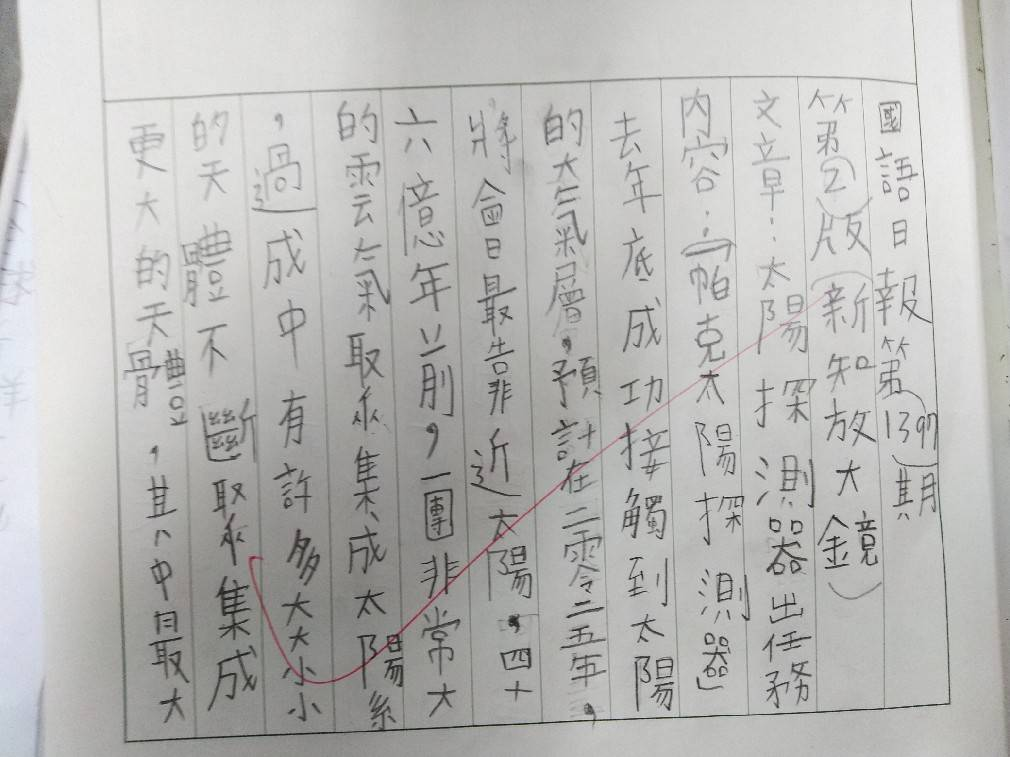 國語日報第1397期
第(2)版(新知放大鏡)
文章：太陽探測器出任務
內容：「帕克太陽探測器」
去年底成功接觸到太陽
的大氣層，預計在二零二五年，
將會最靠近太陽，四十
六億年前，一團非常大
的雲氣聚集成太陽系
，過成中有許多大大小小
的天體不斷聚集成
更大的天體，其中最大